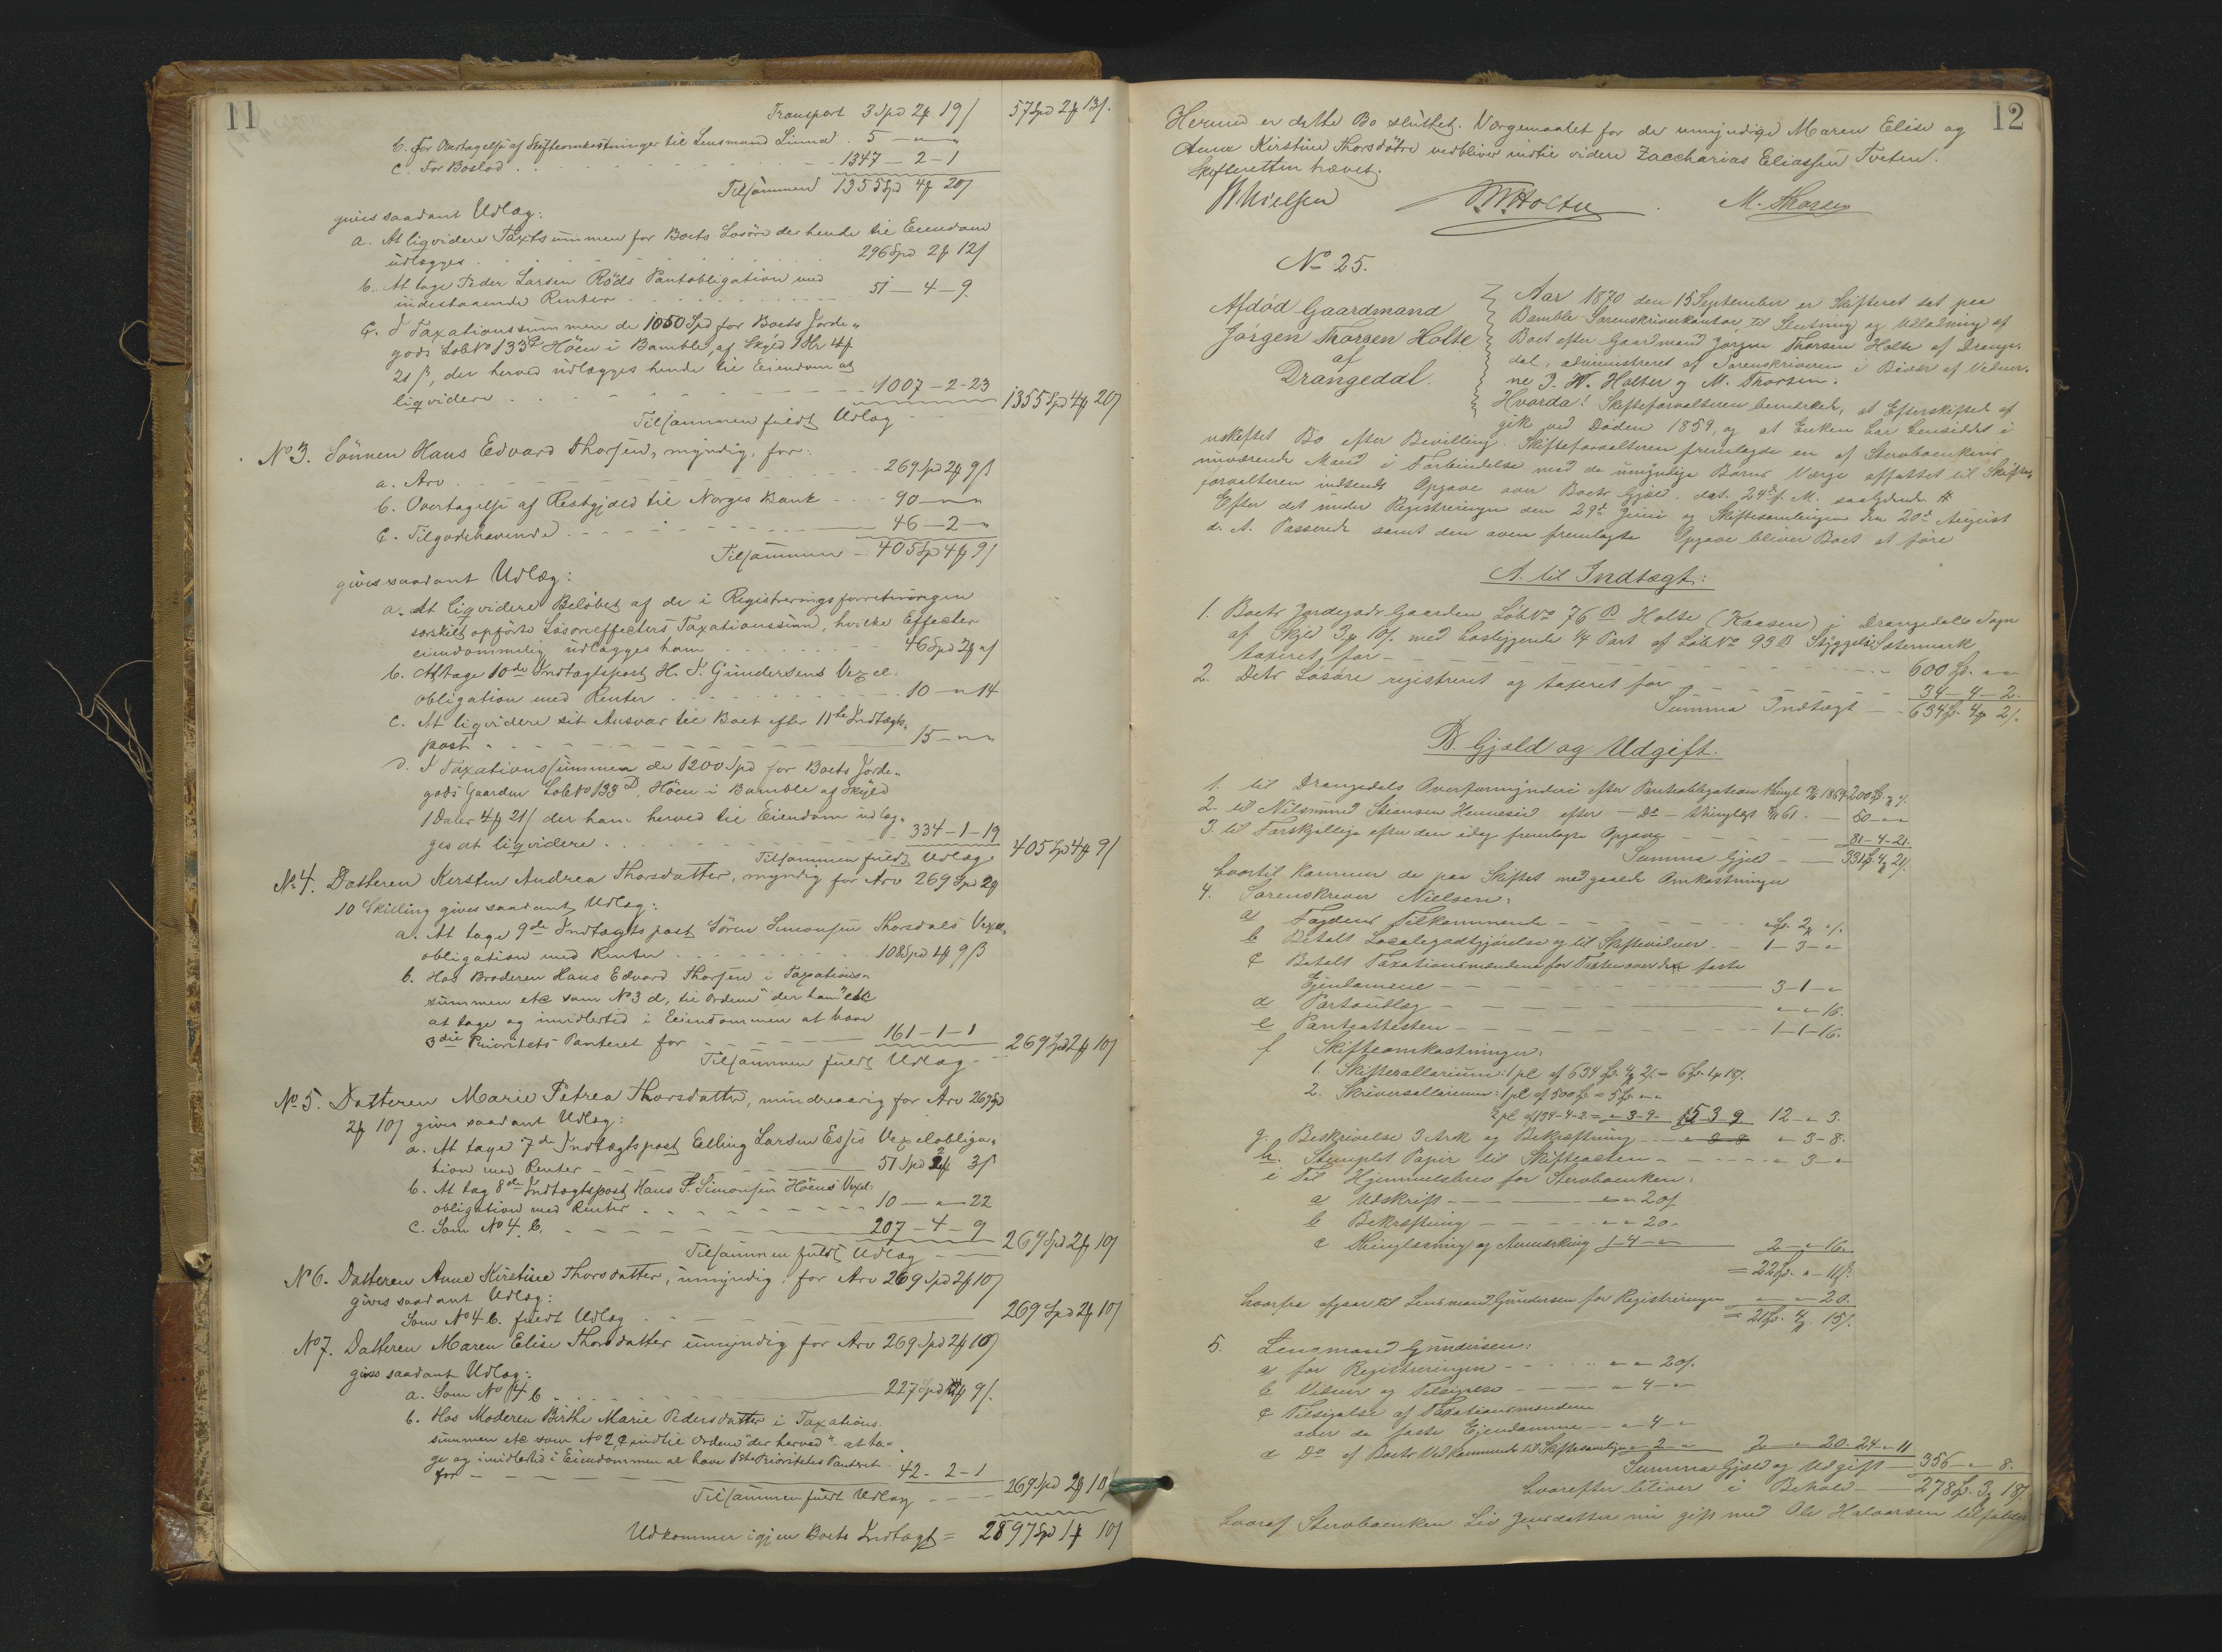 11
Transport 3 Spd 2 ƒ 19 ſ 57 Spd 2 ƒ 13 ſ.
b. for Overtagelse af Skifteomkostninger til Lensmand Lunnd . 5 — " — "
c. For Boslod . . 1347 — 2 — 1
Tilsammen 1355 Spd 4 ƒ 20 ſ
gives saadant Udlæg:
a. At liqvidere Taxtsummen for Boets Løsøre der hende til Eiendom
udlægges . 296 Spd 2 ƒ 12 ſ
b. At tage Peder Larsen Röds Pantobligation med
indestaaende Renter 51 — 4 — 9.
c. I Taxationssummen de 1050 Spd for Boets Jorde-
gods Løb No 133 Höen i Bamble, af Skyld 1 Dlr 4 ƒ
21 β, der herved udlægges hende til Eiendom at
liqvidere . 1007 — 2 - 23
Tilsammen fuldt Udlæg 1355 Spd 4 ƒ 20 ſ
No 3. Sönnen Hans Edvard Thorsen, myndig, for:
a. Arv 269 Spd 2 ƒ 9 β
b. Overtagelse af Restgjæld til Norges Bank 90 — " — "
c. Tilgodehavende 46 — 2 — "
Tilsammen — 405 Sp 4 ƒ 9 ſ
gives saadant Udlæg:
a. At liqvidere Beløbet af de i Registreringsforretningen
særskilt opførte Løsøreeffecters Taxationssum, hvilke Effecter
eiendommelig udlægges ham 46 Spd 2 ƒ " ſ
b. At tage 10de Indtægtspost H. J. Gundersens Vexel-
obligation med Renter 10 — " 14
c. At liqvidere sit Ansvar til Boet efter 11te Indtægts-
post 15 — " — "
d. I Taxationssummen de 1200 Spd for Boets Jorde-
gods Gaarden Løb No 133 D, Höen i Bamble af Skyld
1 Daler 4 ƒ 21 ſ der ham herved til Eiendom udlæg-
ges at liqvidere 334 — 1 — 19
Tilsammen fuldt Udlæg 405 Spd 4 ƒ 9 ſ
No 4. Datteren Kirsten Andrea Thorsdatter, myndig for Arv 269 Spd 2 ƒ
10 Skilling gives saadant Udlæg:
a. At tage 9de Indtægtspost Sören Simonsen Thorsdals Vexel-
obligation med Renter 108 Spd 1 ƒ 9 β
b. Hos Broderen Hans Edvard Thorsen i Taxations-
summen etc som No 3 d, til Ordene "der ham" etc
at tage og imidlertid i Eiendommen at have
3die Prioritets Panteret for 161 — 1 — 1
Tilsammen fuldt Udlæg 269 Spd 2 ƒ 10 ſ
No 5. Datteren Marie Petrea Thorsdatter, mindreaarig for Arv 269 Spd
2 ƒ 10 ſ gives saadant Udlæg:
a. At tage 7de Indtægtspost Elling Larsen Vexelobliga-
tion med Renter 51 Spd 2 ƒ 3 ſ
b. At tag 8de Indtægtspost Hans P. Simonsen Höens Vexel:
obligation med Renter 10 — " — 22
c. Som No 4 b. 207 — 4 — 9
Tilsammen fuldt Udlæg 269 Spd 2 ƒ 10 ſ
No 6. Datteren Anne Kirstine Thorsdatter, umyndig: for Arv 269 Spd 2 ƒ 10 ſ
gives saadant Udlæg:
Som No 4 b. fuldt Udlæg 269 Spd 2 ƒ 10 ſ
No 7. Datteren Maren Elise Thorsdatter umyndig for Arv 269 Spd 2 ƒ 10 ſ
gives saadant Udlæg:
a. Som No 4 b 227 Spd ƒ 9 ſ.
b. Hos Moderen Birthe Marie Pedersdatter i Taxations-
summen etc som No 2, c indtil Ordene "der herved" at ta-
ge og imidlertid i Eiendommen at have 1ste Prioritets Panteret
for 42 - 2 - 1
Tilsammen fuldt Udlæg 269 Spd 2 ƒ 10 ſ
Udkommer igjen Boets Indtægt = 2897 Spd 1 ƒ 10 ſ
12
Hermed er dette Bo sluttet. Værgemaalet for de umyndige Maren Elise og
Anne Kirstine Thorsdøtre vedbliver indtil videre Zaccharias Eliassen Tveten.
Skifteretten hævet.
Nielsen J W Holter. M. Thorsen
No 25.
Afdød Gaardmand
Jörgen Thorsen Holte
af
Drangedal.
Aar 1870 den 15 September er Skifteret sat paa
Bamble Sorenskriverkontor, til Slutning og Udlodning af
Boet efter Gaardmand Jørgen Thorsen Holte af Drange-
dal, administreret af Sorenskriveren i Bivær af Vidner-
ne J. W. Holter og M. Thorsen.
Hvorda! Skifteforvalteren bemærked, at Efterskiftet af
gik ved Døden 1859, og at Enken har hensiddet i
uskiftet Bo efter Bevilling. Skifteforvalteren fremlagde en af Stervboenkens
nuværende Mand i Forbindelse med de umyndige Børns Værge affattet til Skifte-
forvalteren indsendt Opgave over Boets Gjæld, dat. 24de f. M. saalydende. #
Efter det under Registreringen den 29de Juni og Skiftesamlingen den 20de August
d. A. Passerede samt den oven fremlagte Opgave bliver Boet at føre
A. til Indtægt:
1. Boets Jordegods Gaarden Løb No 76 B Holte (Kaasen) i Drangedals Sogn
af Skyld 3 ƒ 10 ſ. med hosliggende 1/4 Part af Løb No 93 B Sætermark
taxeret for 600 Sp. " "
2. Dets Løsøre registreret og taxeret for 34 — 4 — 2.
Summa Indtægt 634 Sp. 4 ƒ 2 ſ.
B. Gjæld og Udgift.
1. til Drangedals Overformynderi efter Panteobligation thingl. 1864 200 Sp. " "
2. til Nilsmund Steansen Henneseid efter — Do — thinglæst 61 50 — " "
3. til Forskjellige efter den idag fremlagte Opgave 81 - 4 - 21.
Summa Gjæld 331 Sp. 4 ƒ 21 ſ.
hvortil kommer de paa Skiftet medgaaede Omkostninger
4. Sorenskriver Nielsen:
a Fogdens Tilkommende " Sp. 2 ƒ " ſ.
b Betalt Localegodtgjørelse og til Skiftevidner 1 — 3 — "
c Betalt Taxationsmændene for Taxten over de faste
Ejendomene 3 — 1 — "
d Portoudlæg " — " 16.
e Panteattesten 1 — 1 — 16.
f Skifteomkostninger:
1. Skiftesallarium: 1 pC af 634 Sp. 4 ƒ 2 ſ. = 6 Sp. 1 ƒ 18 ſ.
2. Skriversallarium: 1 pC af 500 Sp = 5 Sp " "
1/2 pC af 134 - 4 - 2 = " - 3 - 9 - 5 3 9. 12 — " 3.
g. Beskrivelse 3 Ark og Bekræftning " 3 — 8.
h. Stemplet Papir til Skifteacten " 3 — "
i Til Hjemmelsbrev for Stervboenken:
a Udskrift " — " 20 ſ
b Bekræftning " — " 20 "
c Thinglæsning og Anmærkning 1 — 4 — " 2 — " 16.
= 22 Sp. " — 11 ſ.
hvorfra afgaar til Lensmand Gundersen for Registreringen " — " 20.
= 21 Sp. 4 ƒ 15 ſ.
5. Lensmand Gundersen:
a for Registreringen " — " 20 ſ.
b Vidner og Tilsigelse " 4 — "
c Tilsigelse af Taxationsmændene
over de faste Ejendomme " — 4 — "
d Do af Boets Vedkommende til Skiftesamlingen " 2 — " 2 — " 20. 24 " 11
Summa Gjæld og Udgift 356 — " 8.
hvorefter bliver i Behold 278 Sp. 3 ƒ 18 ſ.
hvoraf Stervboenken Liv Jensdatter nu gift med Ole Halvorsen tilfalder